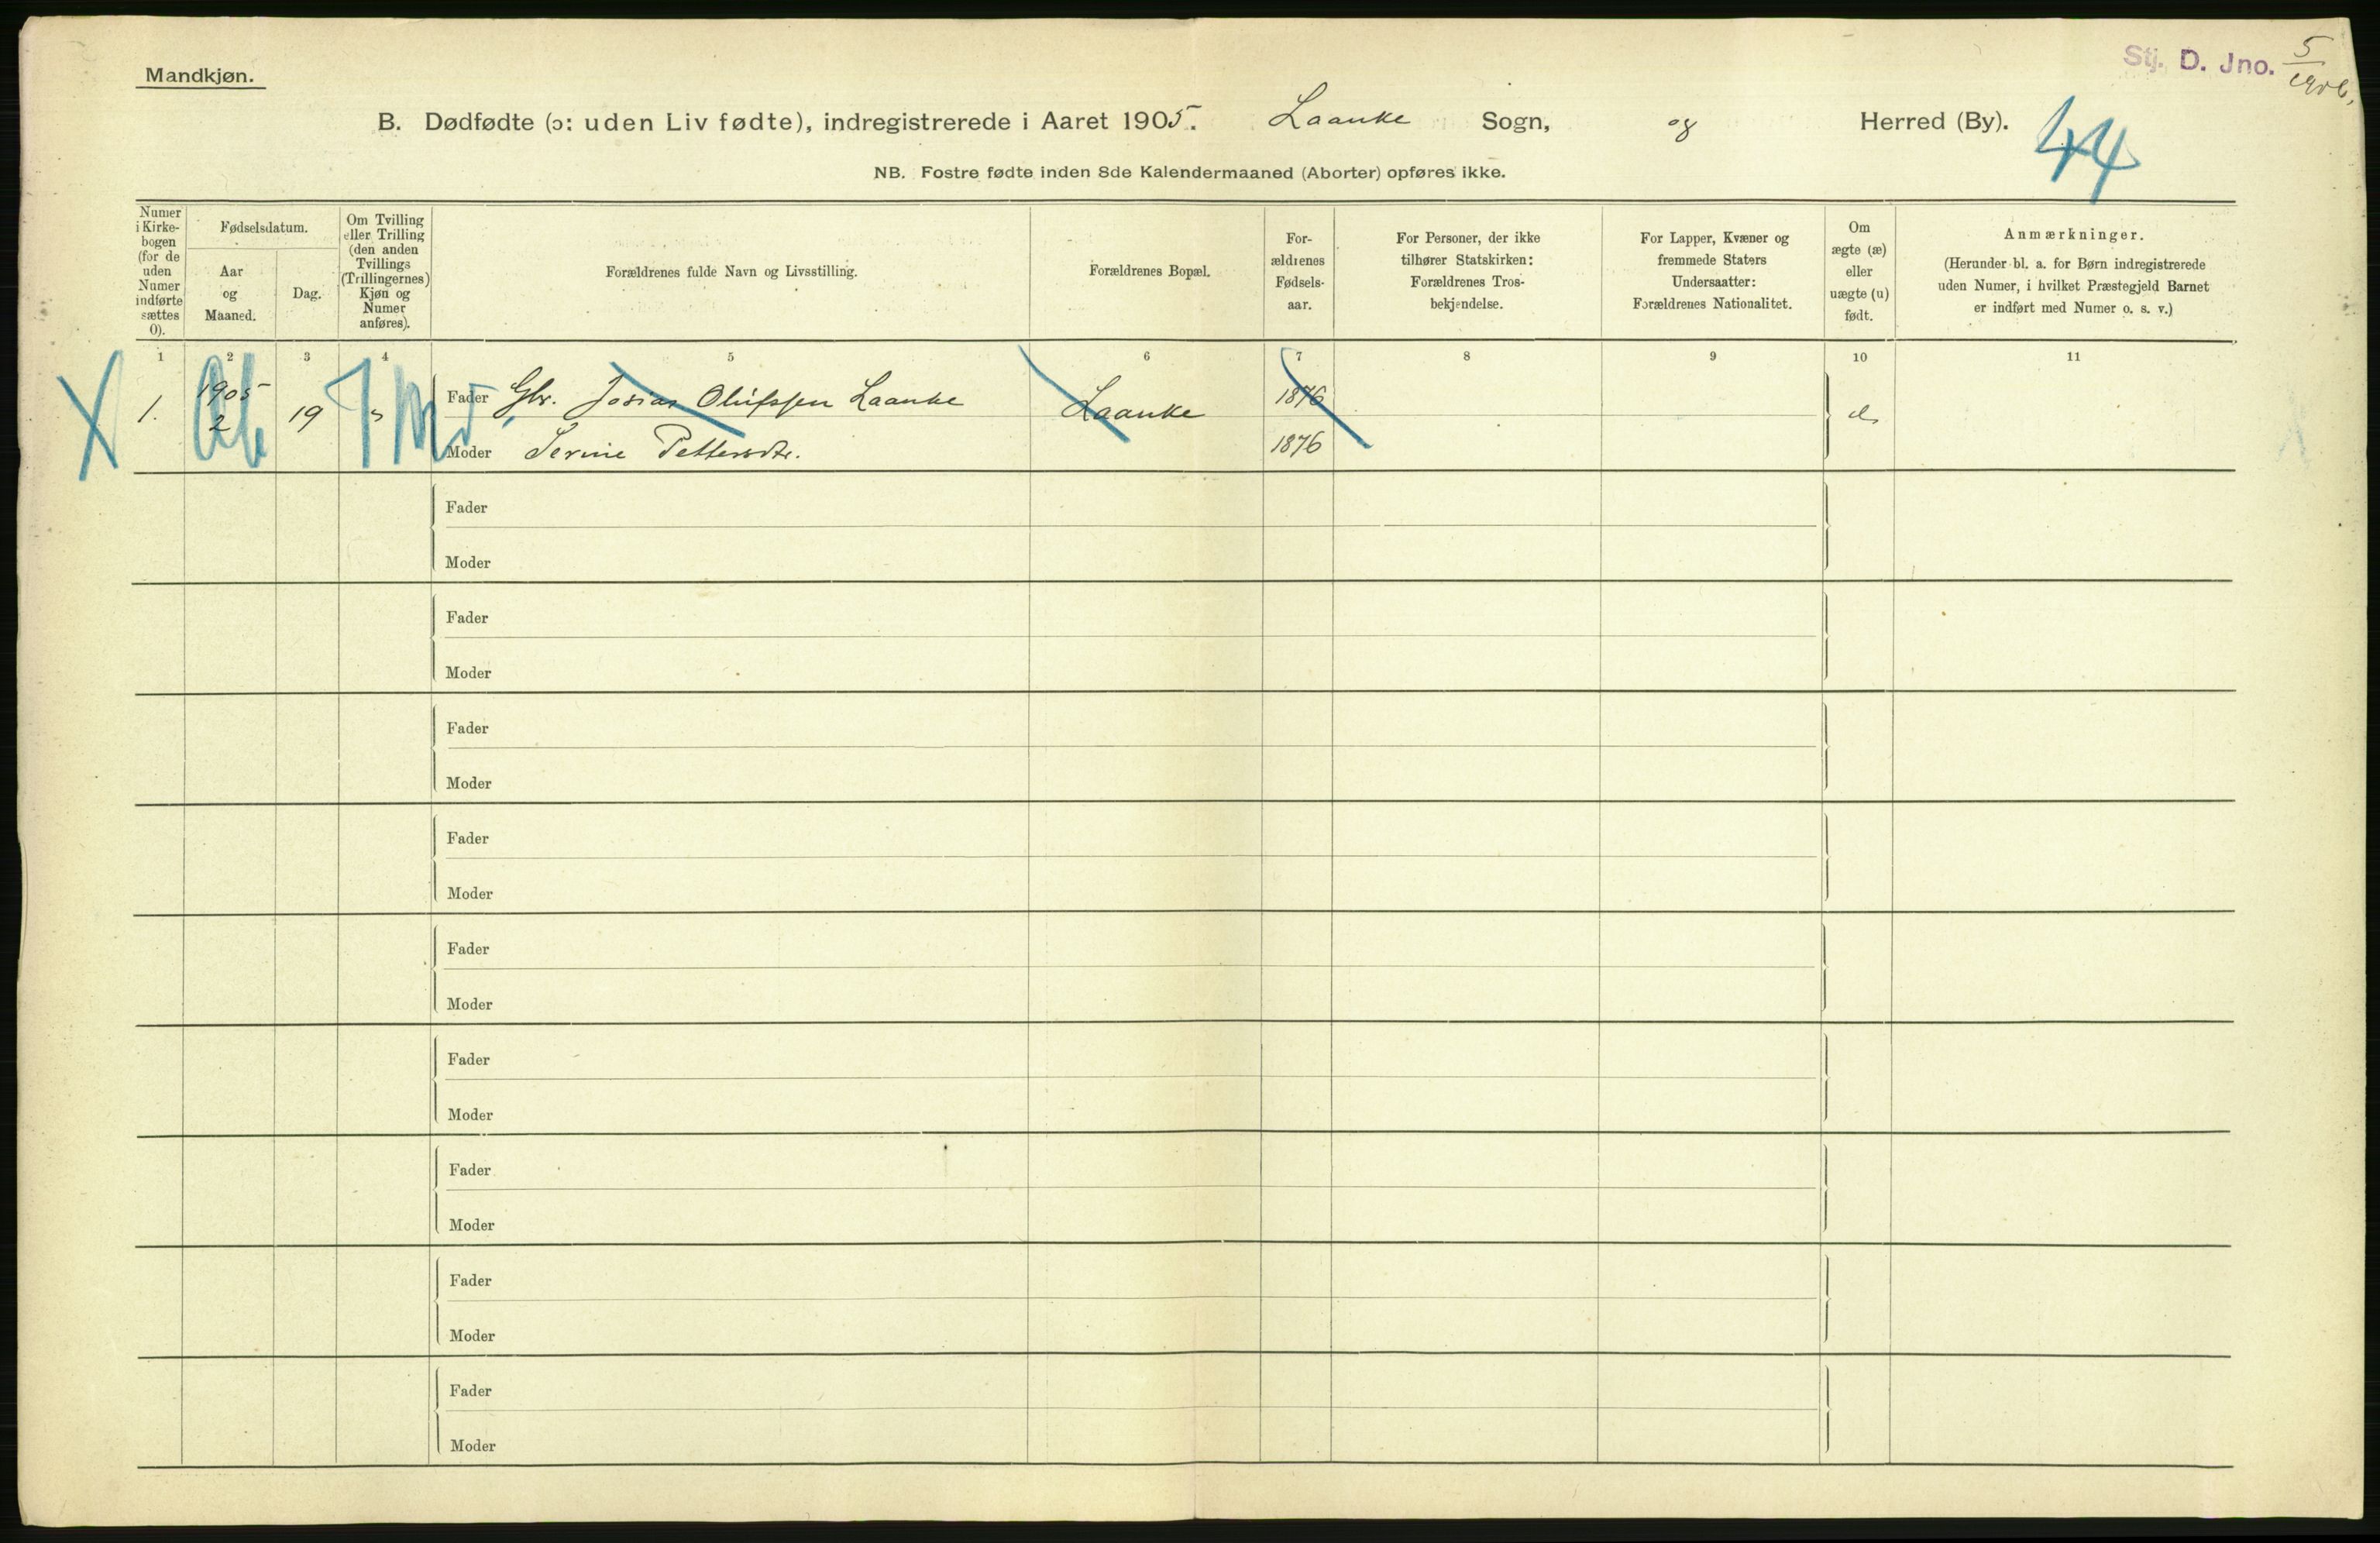 Mandkjøn.
Stj. D. Jno. 5/1906.
B. Dødfødte (ɔ: uden Liv fødte), indregistrerede i Aaret 1905. Laanke Sogn, og Herred (By).
44
NB. Fostre fødte inden 8de Kalendermaaned (Aborter) opføres ikke.
Numer
i Kirke-
bogen
(for de
uden
Numer
indførte
sættes
0).
Fødselsdatum.
Aar
og
Maaned.
Dag.
Om Tvilling
eller Trilling
(den anden
Tvillings
(Trillingernes)
Kjøn og
Numer
anføres).
Forældrenes fulde Navn og Livsstilling.
Forældrenes Bopæl.
For-
ældrenes
Fødsels-
aar.
For Personer, der ikke
tilhører Statskirken:
Forældrenes Tros-
bekjendelse.
For Lapper, Kvæner og
fremmede Staters
Undersaatter:
Forældrenes Nationalitet.
Om
ægte (æ)
eller
uægte (u)
født.
Anmærkninger.
(Herunder bl. a. for Børn indregistrerede
uden Numer, i hvilket Præstegjeld Barnet
er indført med Numer o. s. v.)
1 2 3 4 5 6 7 8 9 10 11
X 1. 1905 2 19 " Fader Gbr. Josias Olufssen Laanke Laanke 1876 æ
Moder Serine Pettersdtr. 1876
Fader
Moder
Fader
Moder
Fader
Moder
Fader
Moder
Fader
Moder
Fader
Moder
Fader
Moder
Fader
Moder
Fader
Moder